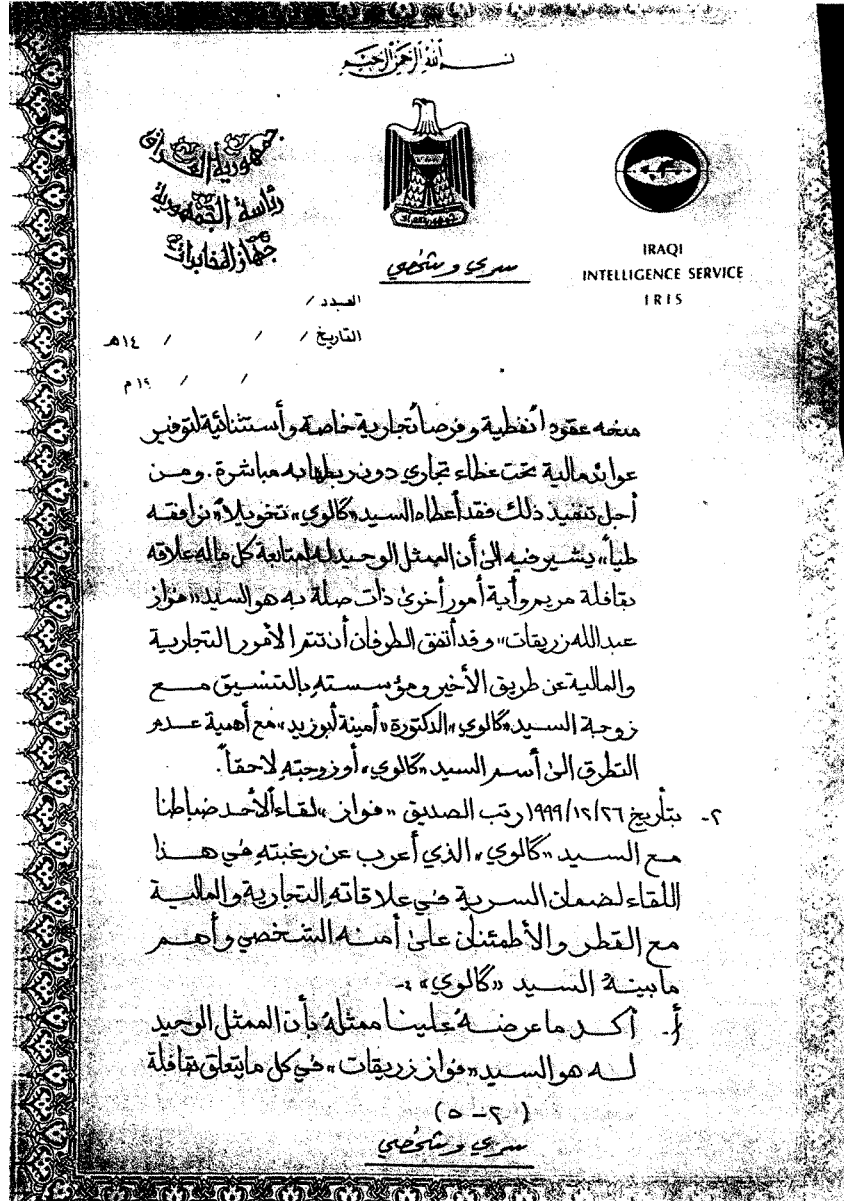 بسم الله الرحمن الرحيم
جمهورية العراق
رئاسة الجمهورية
جهاز المخابرات
سري وشخصي
IRAQI
INTELLIGENCE SERVICE
IRIS
العدد /
التاريخ / / / ١٤هـ
/ / ١٩م
منحه عقوداً نفطية وفرصاً تجارية خاصة وأستثنائية لتوفير
عوائد مالية تحت غطاء تجاري دون ربطها به مباشرة. ومن
أجل تنفيذ ذلك فقد أعطاه السيد «گالوي» تخويلاً «نرافقه
طياً» يشير فيه الى أن الممثل الوحيد له لمتابعة كل ماله علاقه
بقافلة مريم وأية أمور أخرى ذات صلة به هو السيد «فواز
عبدالله زريقات» وقد أتفق الطرفان أن تتم الأمور التجارية
والمالية عن طريق الأخير ومؤسسته بالتنسيق مع
زوجة السيد «گالوي» الدكتورة «أمينة أبوزيد» مع أهمية عدم
التطرق الى أسم السيد «گالوي» أو زوجته لاحقاً.
٢- بتأريخ ١٩٩٩/١٢/٢٦ رتب الصديق «فواز» لقاءاً لأحد ضباطنا
مع السيد «گالوي» الذي أعرب عن رغبته في هذا
اللقاء لضمان السرية في علاقاته التجارية والمالية
مع القطر والأطمئنان على أمنه الشخصي وأهم
مابينه السيد «گالوي» :-
أ- أكد ماعرضه علينا ممثله بأن الممثل الوحيد
له هو السيد «فواز زريقات» في كل مايتعلق بقافلة
(٢-٥)
سري وشخصي